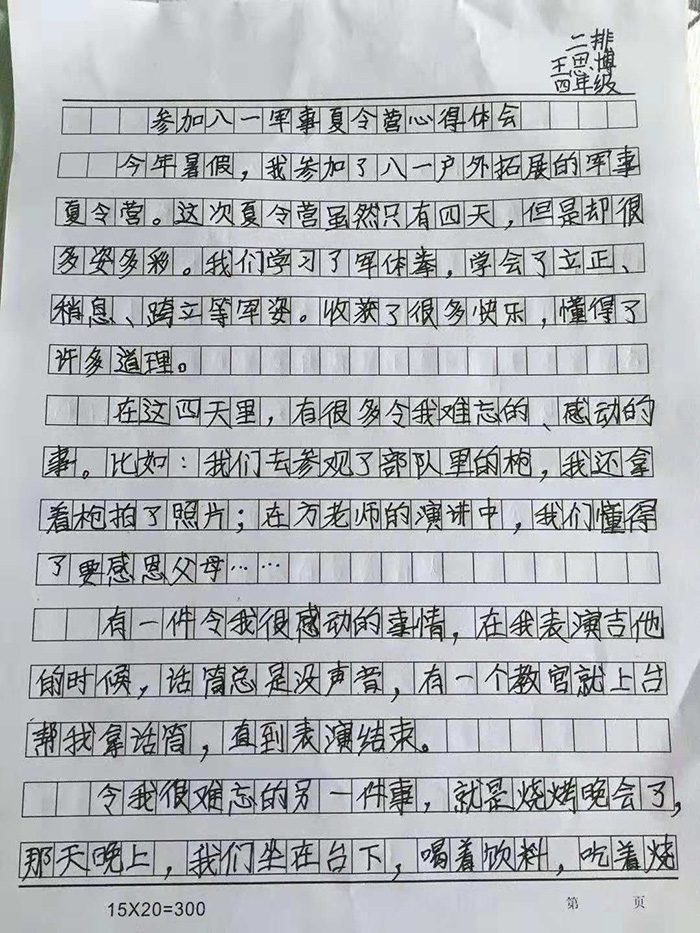 二排
王思博
四年级
参加八一军事夏令营心得体会
今年暑假，我参加了八一户外拓展的军事
夏令营。这次夏令营虽然只有四天，但是却很
多姿多彩。我们学习了军体拳，学会了立正、
稍息、跨立等军姿。收获了很多快乐，懂得了
许多道理。
在这四天里，有很多令我难忘的、感动的
事。比如：我们去参观了部队里的枪，我还拿
着枪拍了照片；在方老师的演讲中，我们懂得
了要感恩父母……
有一件令我很感动的事情，在我表演吉他
的时候，话筒总是没声音，有一个教官就上台
帮我拿话筒，直到表演结束。
令我很难忘的另一件事，就是烧烤晚会了，
那天晚上，我们坐在台下，喝着饮料，吃着烧
15X20=300
第 页